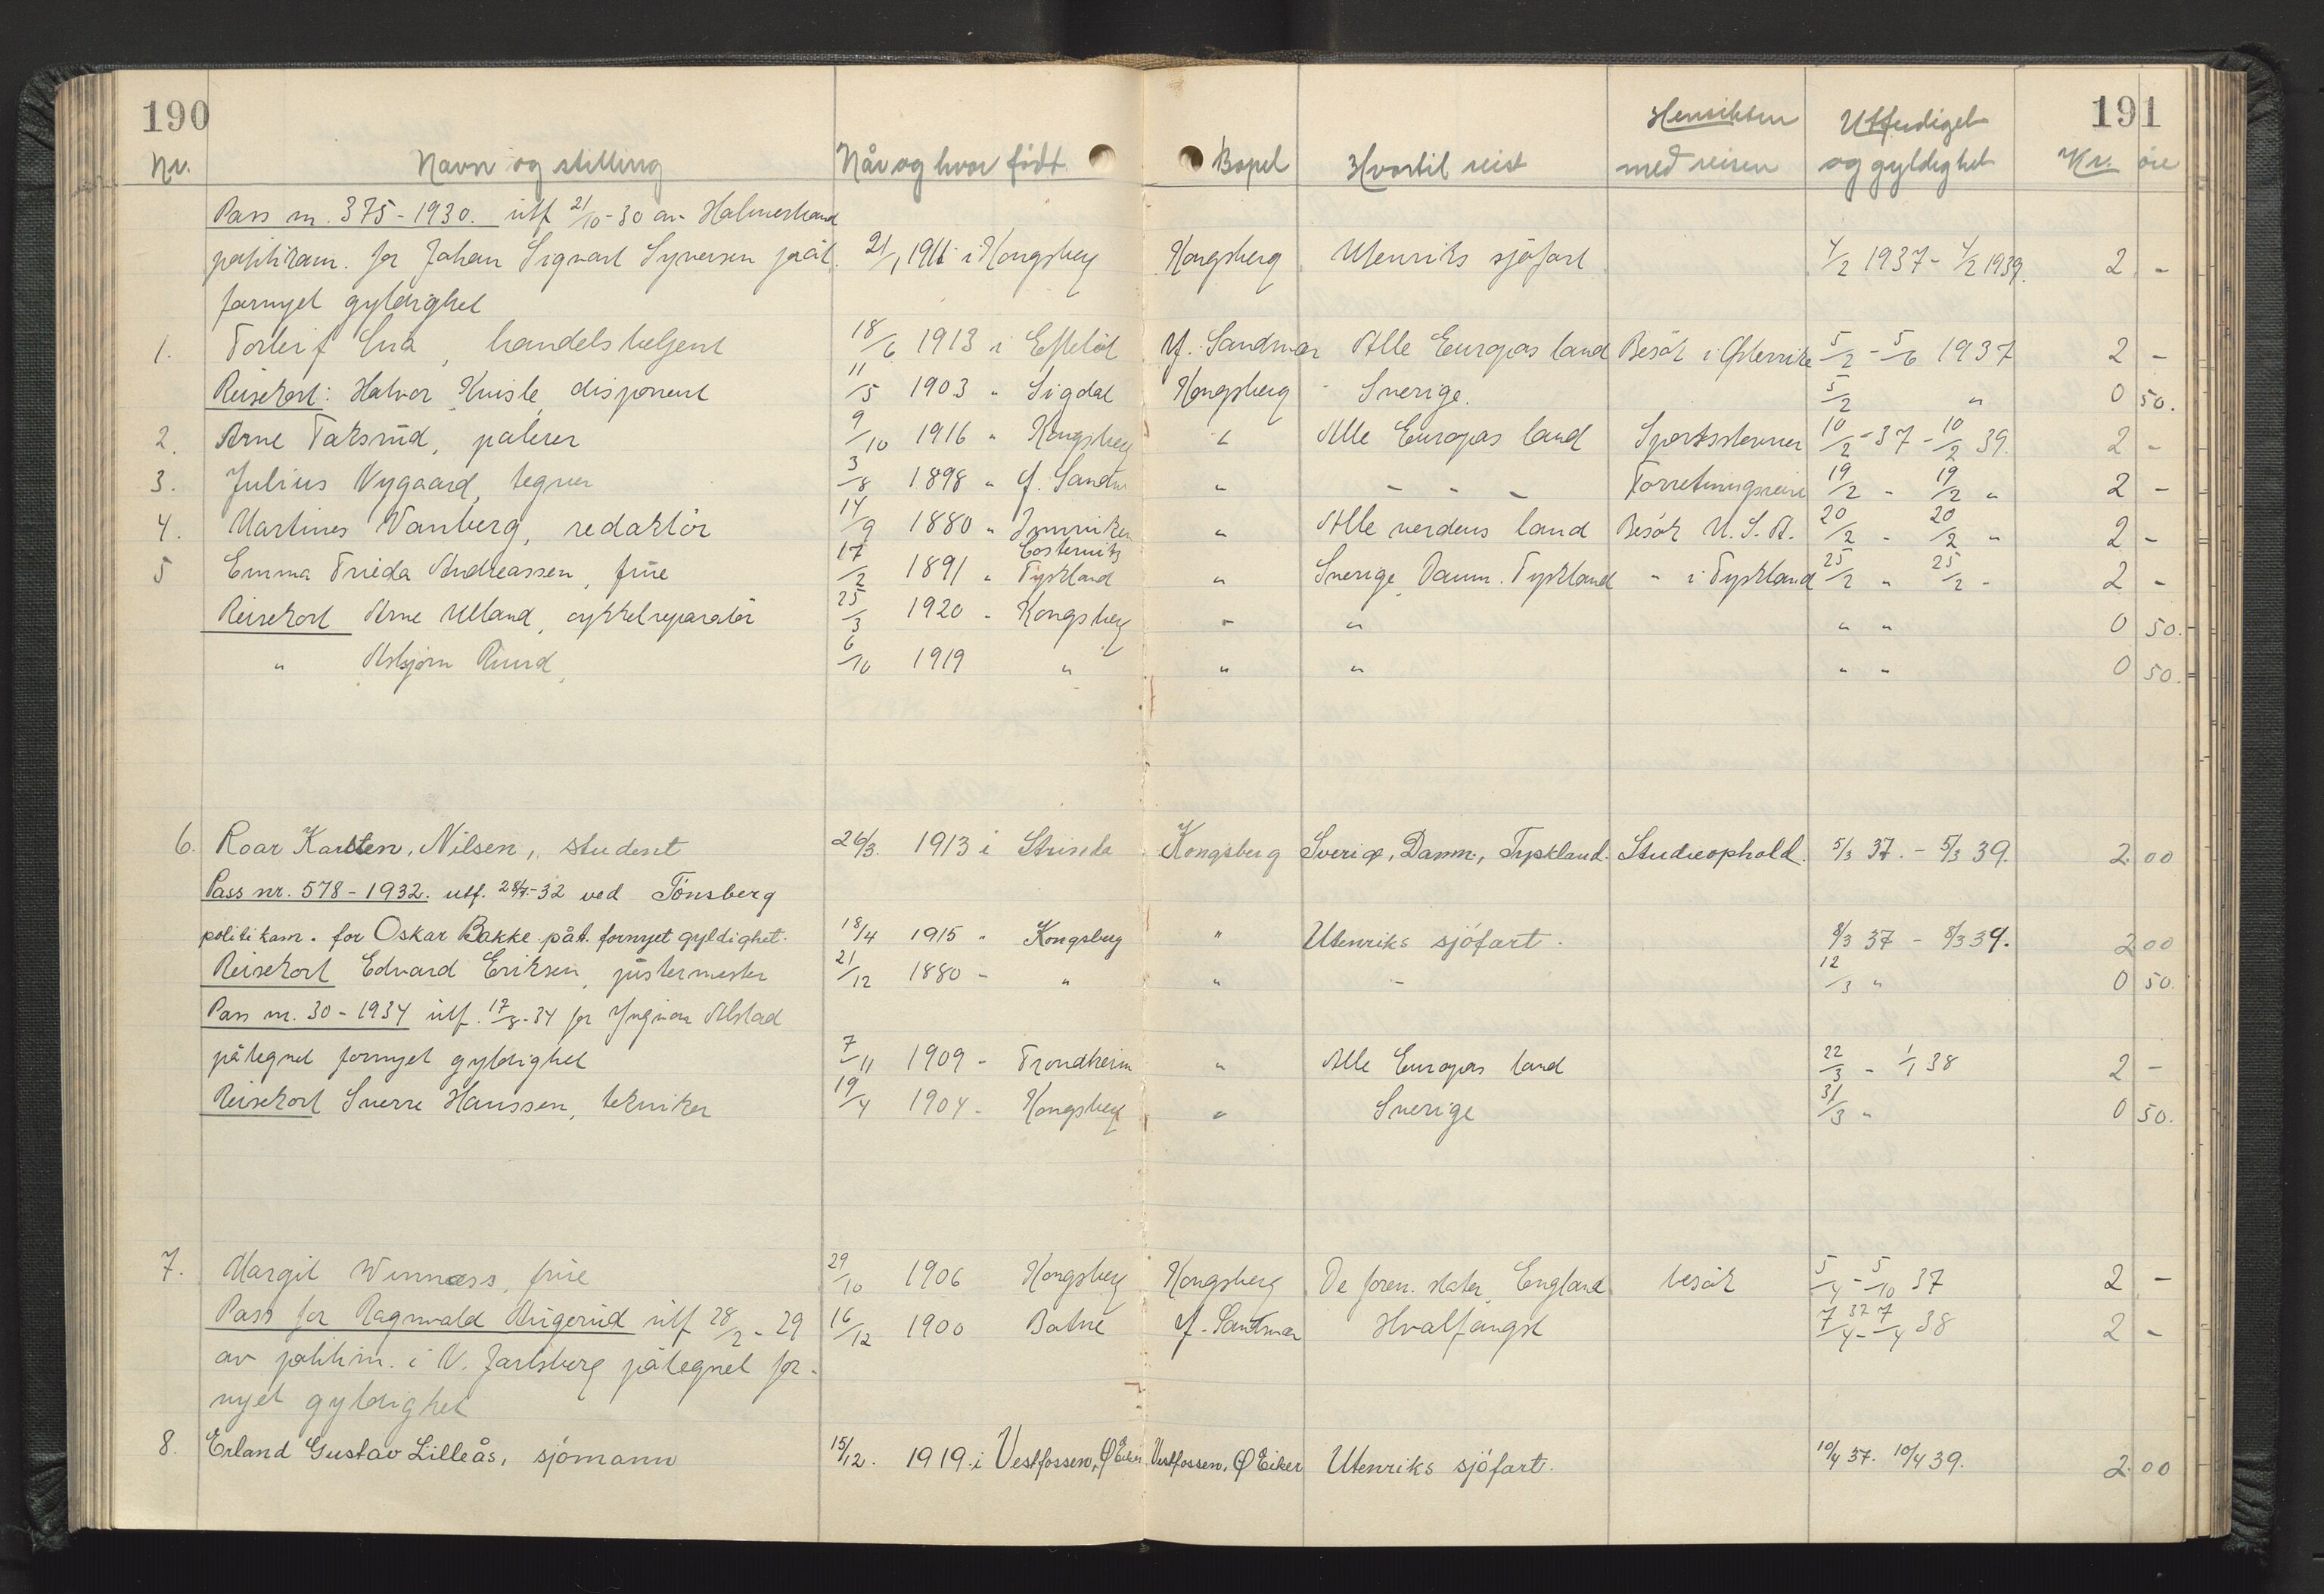 190
191
Nr. Navn og stilling Når og hvor født Bopel Hvortil reist Hensikten med reisen Utferdiget og gyldighet Kr. öre
Pass nr. 375 - 1930. utf 21/10-30 av Holmestrand
politikam. for Johan Sigvart Syversen påt. 21/1 1911 i Kongsberg Kongsberg Utenriks sjöfart 4/2 1937 - 4/2 1939. 2 -
fornyet gyldighet
1. Torleif , handelsbetjent 18/6 1913 i Efteløt Y. Sandsvær Alle Europas land Besök i Østerrike 5/2 - 5/6 1937 2 -
Reisekort: Halvor Kvisle, disponent 11/5 1903 " Sigdal Kongsberg Sverige. 5/2 " 0 50.
2. Arne Taksrud, pølser 9/10 1916 " Kongsberg " Alle Europas land Sportsstevner 10/2 - 37 - 10/2 39. 2 -
3. Julius Nygaard, tegner 3/8 1898 " Y. Sandsv " - - - Forretningsreise 19/2 - 19/2 " 2 -
4. Martines Vanberg, redaktör 14/9 1880 " " Alle verdens land Besök U.S.A. 20/2 - 20/2 " 2 -
5 Emma Frieda Andreassen, frue 17/2 1891 " Costernitz Tyskland " Sverige, Danm. Tyskland " i Tyskland 25/2 " 25/2 - 2 -
Reisekort Arne Ulland, cykkelreparatör 25/3 1920 - Kongsberg " " " " 0 50.
" Asbjørn Ruud, 6/10 1919 " " " " " 0 50.
6. Roar Karsten, Nilsen, student 26/3. 1913 i Strinda Kongsberg Sverige, Danm., Tyskland. Studieophold. 5/3 37. - 5/3 39. 2.00
Pass nr. 578 - 1932. utf. 28/7-32 ved Tönsberg
politikam. for Oskar Bakke påt. fornyet gyldighet. 18/4 1915 " Kongsberg " Utenriks sjöfart. 8/3 37 - 8/3 39. 2 00
Reisekort Edvard Eriksen, justermester 21/12 1880 - " " - 12/3 " 0 50.
Pass nr. 30 - 1934 utf. 17/8-34 for Yngvar Alstad
påtegnet fornyet gyldighet 7/11 1909 - Trondheim " Alle Europas land 22/3 - 1/1 38 2 -
Reisekort Sverre Hanssen, tekniker 19/4 1904 - Kongsberg " Sverige 31/3 " 0 50.
7. Margit Winnæss, frue 29/10 1906 Kongsberg Kongsberg De foren. stater, England besök 5/4 - 5/10 37 2 -
Pass for Ragnvald Haugerud utf 28/2 - 29 16/12 1900 Botne Y. Sandsvær Hvalfangst 7/4 37 - 7/4 38 2 -
av politim. i N. Jarlsberg påtegnet for-
nyet gyldighet
8. Erland Gustav Lilleås, sjömann 15/12. 1919. i Vestfossen, Ø Eiker Vestfossen, Ø Eiker Utenriks sjöfart. 10/4 37. 10/4 39. 2.00